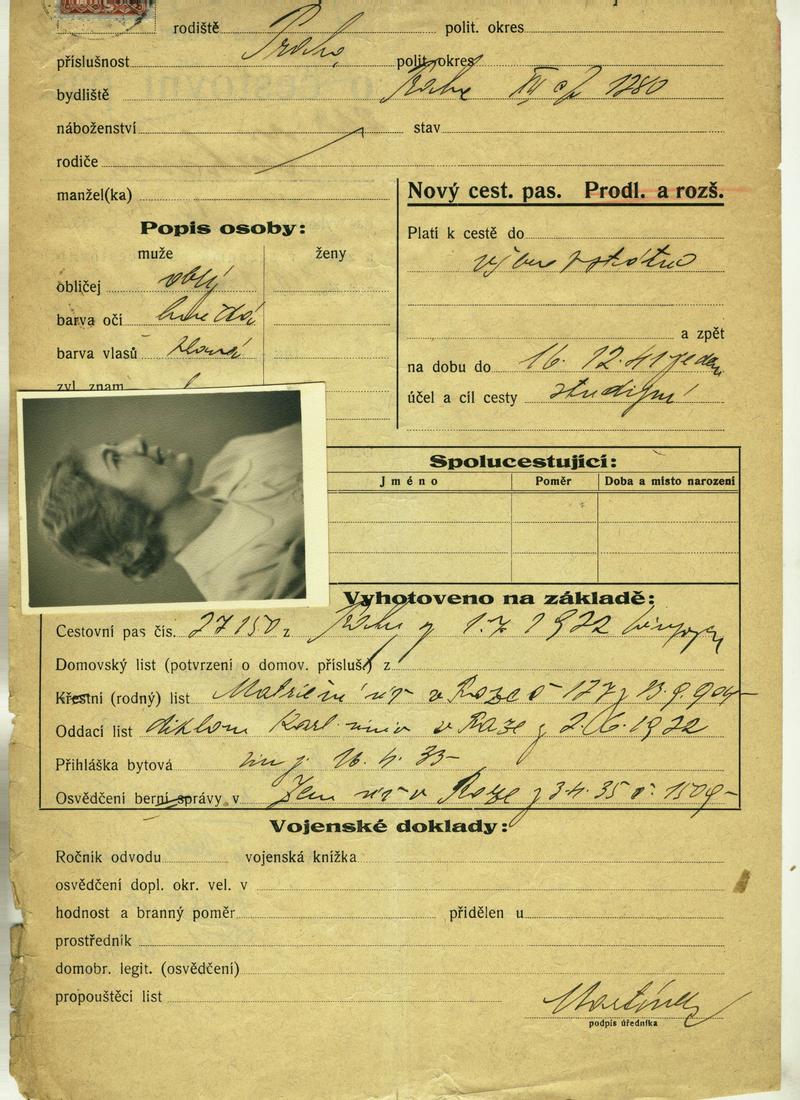 rodiště polit. okres
příslušnost Praha polit. okres
bydliště Praha XII čp 1280
náboženství stav
rodiče
manžel(ka)
Nový cest. pas. Prodl. a rozš.
Popis osoby:
muže ženy
obličej oblý
barva očí hnědá
barva vlasů
zvl. znam.
Platí k cestě do
a zpět
na dobu do 16. 12. 41 jeden
účel a cíl cesty studijní
Spolucestující:
Jméno Poměr Doba a místo narození
Vyhotoveno na základě:
Cestovní pas čís. 27150 z 1932
Domovský list (potvrzení o domov. přísluš.) z
Křestní (rodný) list v Praze č 177 z 13. 9. 904
Oddací list diplom Karl. univ v Praze z 2. 6. 1932
Přihláška bytová 16. 4. 35
Osvědčení berní správy v Zem v Praze z 3. 4. 35 č. 1509
Vojenské doklady:
Ročník odvodu vojenská knížka
osvědčení dopl. okr. vel. v
hodnost a branný poměr přidělen u
prostředník
domobr. legit. (osvědčení)
propouštěcí list
podpis úředníka